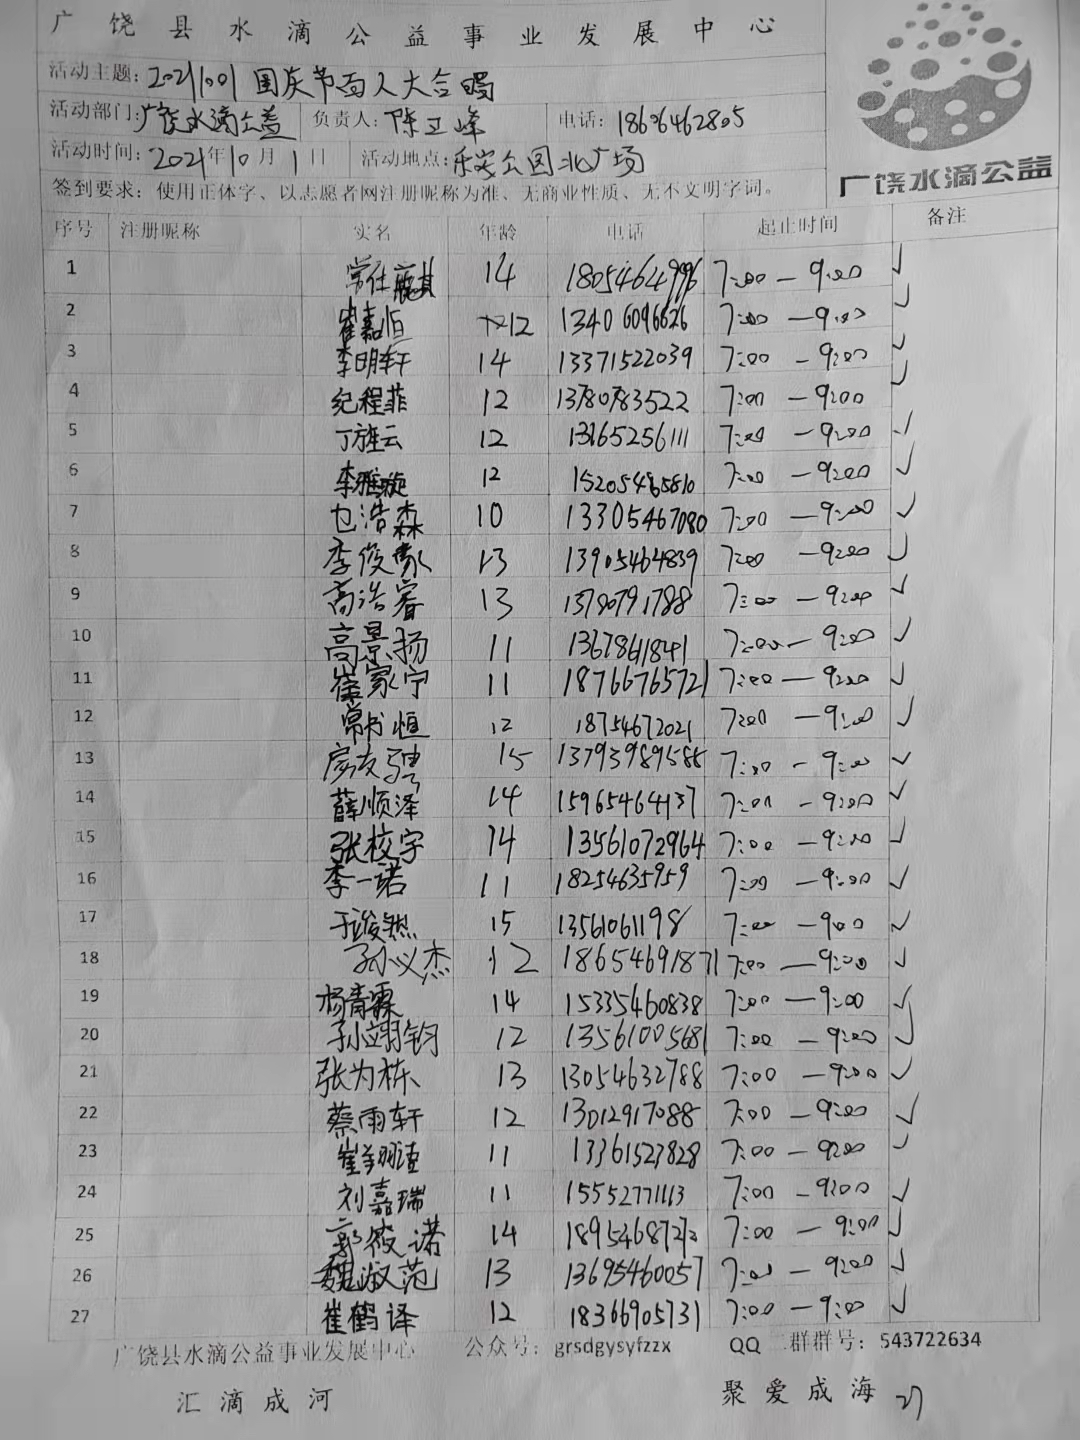 广饶县水滴公益事业发展中心
活动主题: 20211001 国庆节百人大合唱
活动部门: 广饶水滴公益 负责人: 陈卫峰 电话: 18606462805
活动时间: 2021年10月1日 活动地点: 乐安公园北广场
签到要求: 使用正体字、以志愿者网注册昵称为准、无商业性质、无不文明字词。
广饶水滴公益
序号 注册昵称 实名 年龄 电话 起止时间 备注
1 常仕麒 14 1805464996 7:00 — 9:00 ✓
2 崔嘉恒 12 13406096626 7:00 — 9:00 ✓
3 李明轩 14 13371522039 7:00 — 9:00 ✓
4 纪程菲 12 13780783522 7:00 — 9:00 ✓
5 丁旌云 12 13165256111 7:00 — 9:00 ✓
6 李雅璇 12 15205465810 7:00 — 9:00 ✓
7 乜浩森 10 13305467080 7:00 — 9:00 ✓
8 李俊豪 13 13905464839 7:00 — 9:00 ✓
9 高浩睿 13 13780791788 7:00 — 9:00 ✓
10 高景扬 11 13678611841 7:00 — 9:00 ✓
11 崔家宁 11 18766765721 7:00 — 9:00 ✓
12 常书恒 12 18754672021 7:00 — 9:00 ✓
13 房友骋 15 13793989588 7:00 — 9:00 ✓
14 薛顺泽 14 15965464137 7:00 — 9:00 ✓
15 张校宇 14 13561072964 7:00 — 9:00 ✓
16 李一诺 11 18254635959 7:00 — 9:00 ✓
17 于浚然 15 13561061198 7:00 — 9:00 ✓
18 孙义杰 12 18654691871 7:00 — 9:00 ✓
19 杨清霖 14 15335460838 7:00 — 9:00 ✓
20 孙翊钧 12 13561005681 7:00 — 9:00 ✓
21 张为栋 13 13054632788 7:00 — 9:00 ✓
22 蔡雨轩 12 13012917088 7:00 — 9:00 ✓
23 崔 11 13361523828 7:00 — 9:00 ✓
24 刘嘉瑞 11 15552771113 7:00 — 9:00 ✓
25 郭筱诺 14 18954687272 7:00 — 9:00 ✓
26 魏淑范 13 13695460057 7:00 — 9:00 ✓
27 崔鹤译 12 18366905731 7:00 — 9:00 ✓
广饶县水滴公益事业发展中心 公众号: grsdgysyfzzx QQ 二群群号: 543722634
汇滴成河 聚爱成海 27